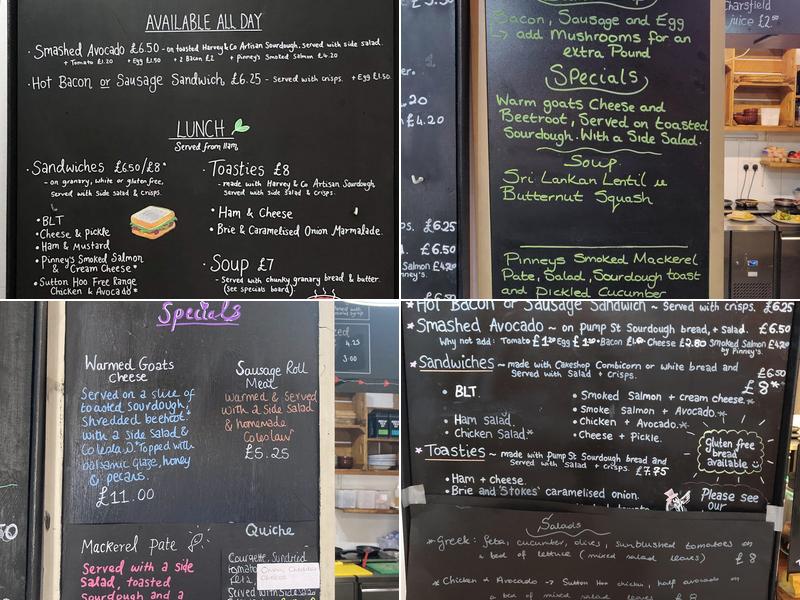 AVAILABLE ALL DAY
· Smashed Avocado £6.50 - on toasted Harvey & Co Artisan Sourdough, served with side salad.
+ Tomato £1.20 + Egg £1.50 + 2 Bacon £2 + Pinney's Smoked Salmon £4.20
· Hot Bacon or Sausage Sandwich £6.25 - Served with crisps. + Egg £1.50
LUNCH
Served from 11am
· Sandwiches £6.50/£8*
- on granary, white or gluten free,
served with side salad & crisps.
• BLT
• Cheese & pickle
• Ham & Mustard
• Pinney's Smoked Salmon
& Cream Cheese*
• Sutton Hoo Free Range
Chicken & Avocado*
· Toasties £8
- made with Harvey & Co Artisan Sourdough,
served with side Salad & crisps.
• Ham & Cheese
• Brie & Caramelised Onion Marmalade.
· Soup £7
- Served with chunky granary bread & butter.
(See specials board)
£4.20
£6.25
£6.50
Salmon £4.20
Pinney's.
Bacon, Sausage and Egg
↳ add Mushrooms for an
extra Pound
Specials
Warm goats Cheese and
Beetroot, Served on toasted
Sourdough. With a Side Salad.
Soup.
Sri Lankan Lentil
Butternut Squash
Pinneys Smoked Mackerel
Pate, Salad, Sourdough toast
and Pickled Cucumber
Charsfield
juice £2⁵⁰
Specials
Warmed Goats
Cheese
Served on a slice of
toasted sourdough,
Shredded beetroot
with a side salad &
Coleslaw. Topped with
balsamic glaze, honey
& pecans.
£11.00
Sausage Roll
Meat
Warmed & Served
with a side salad
& homemade
Coleslaw
£5.25
Mackerel Pate
Served with a side
Salad, toasted
Sourdough and a
Quiche
Courgette, Sundried
tomato
Feta,
Served with side salad
4.25
3.00
Hot Bacon or Sausage Sandwich ~ Served with crisps. £6.25
* Smashed Avocado ~ on Pump St Sourdough bread, + salad. £6.50
Why not add: Tomato £1.20 Egg £1.50 Bacon £1.50 Cheese £2.80 Smoked Salmon £4.20
by Pinney's.
* Sandwiches ~ made with Cakeshop Combicorn or white bread and
Served with Salad + crisps.
£6.50
£8*
• BLT.
• Ham salad.
• Chicken Salad.*
• Smoked Salmon + cream cheese.*
• Smoked salmon + Avocado.*
• Chicken + Avocado.*
• Cheese + Pickle.
* Toasties ~ made with Pump St Sourdough bread and
Served with Salad + crisps. £7.75
• Ham + cheese.
• Brie and 'Stokes' caramelised onion.
gluten free
bread
available
Please see
our
Salads
* Greek: feta, cucumber, olives, sunblushed tomatoes on
a bed of lettuce (mixed salad leaves) £8
* Chicken & Avocado → Sutton Hoo chicken, half avocado on
a bed of mixed salad leaves £8